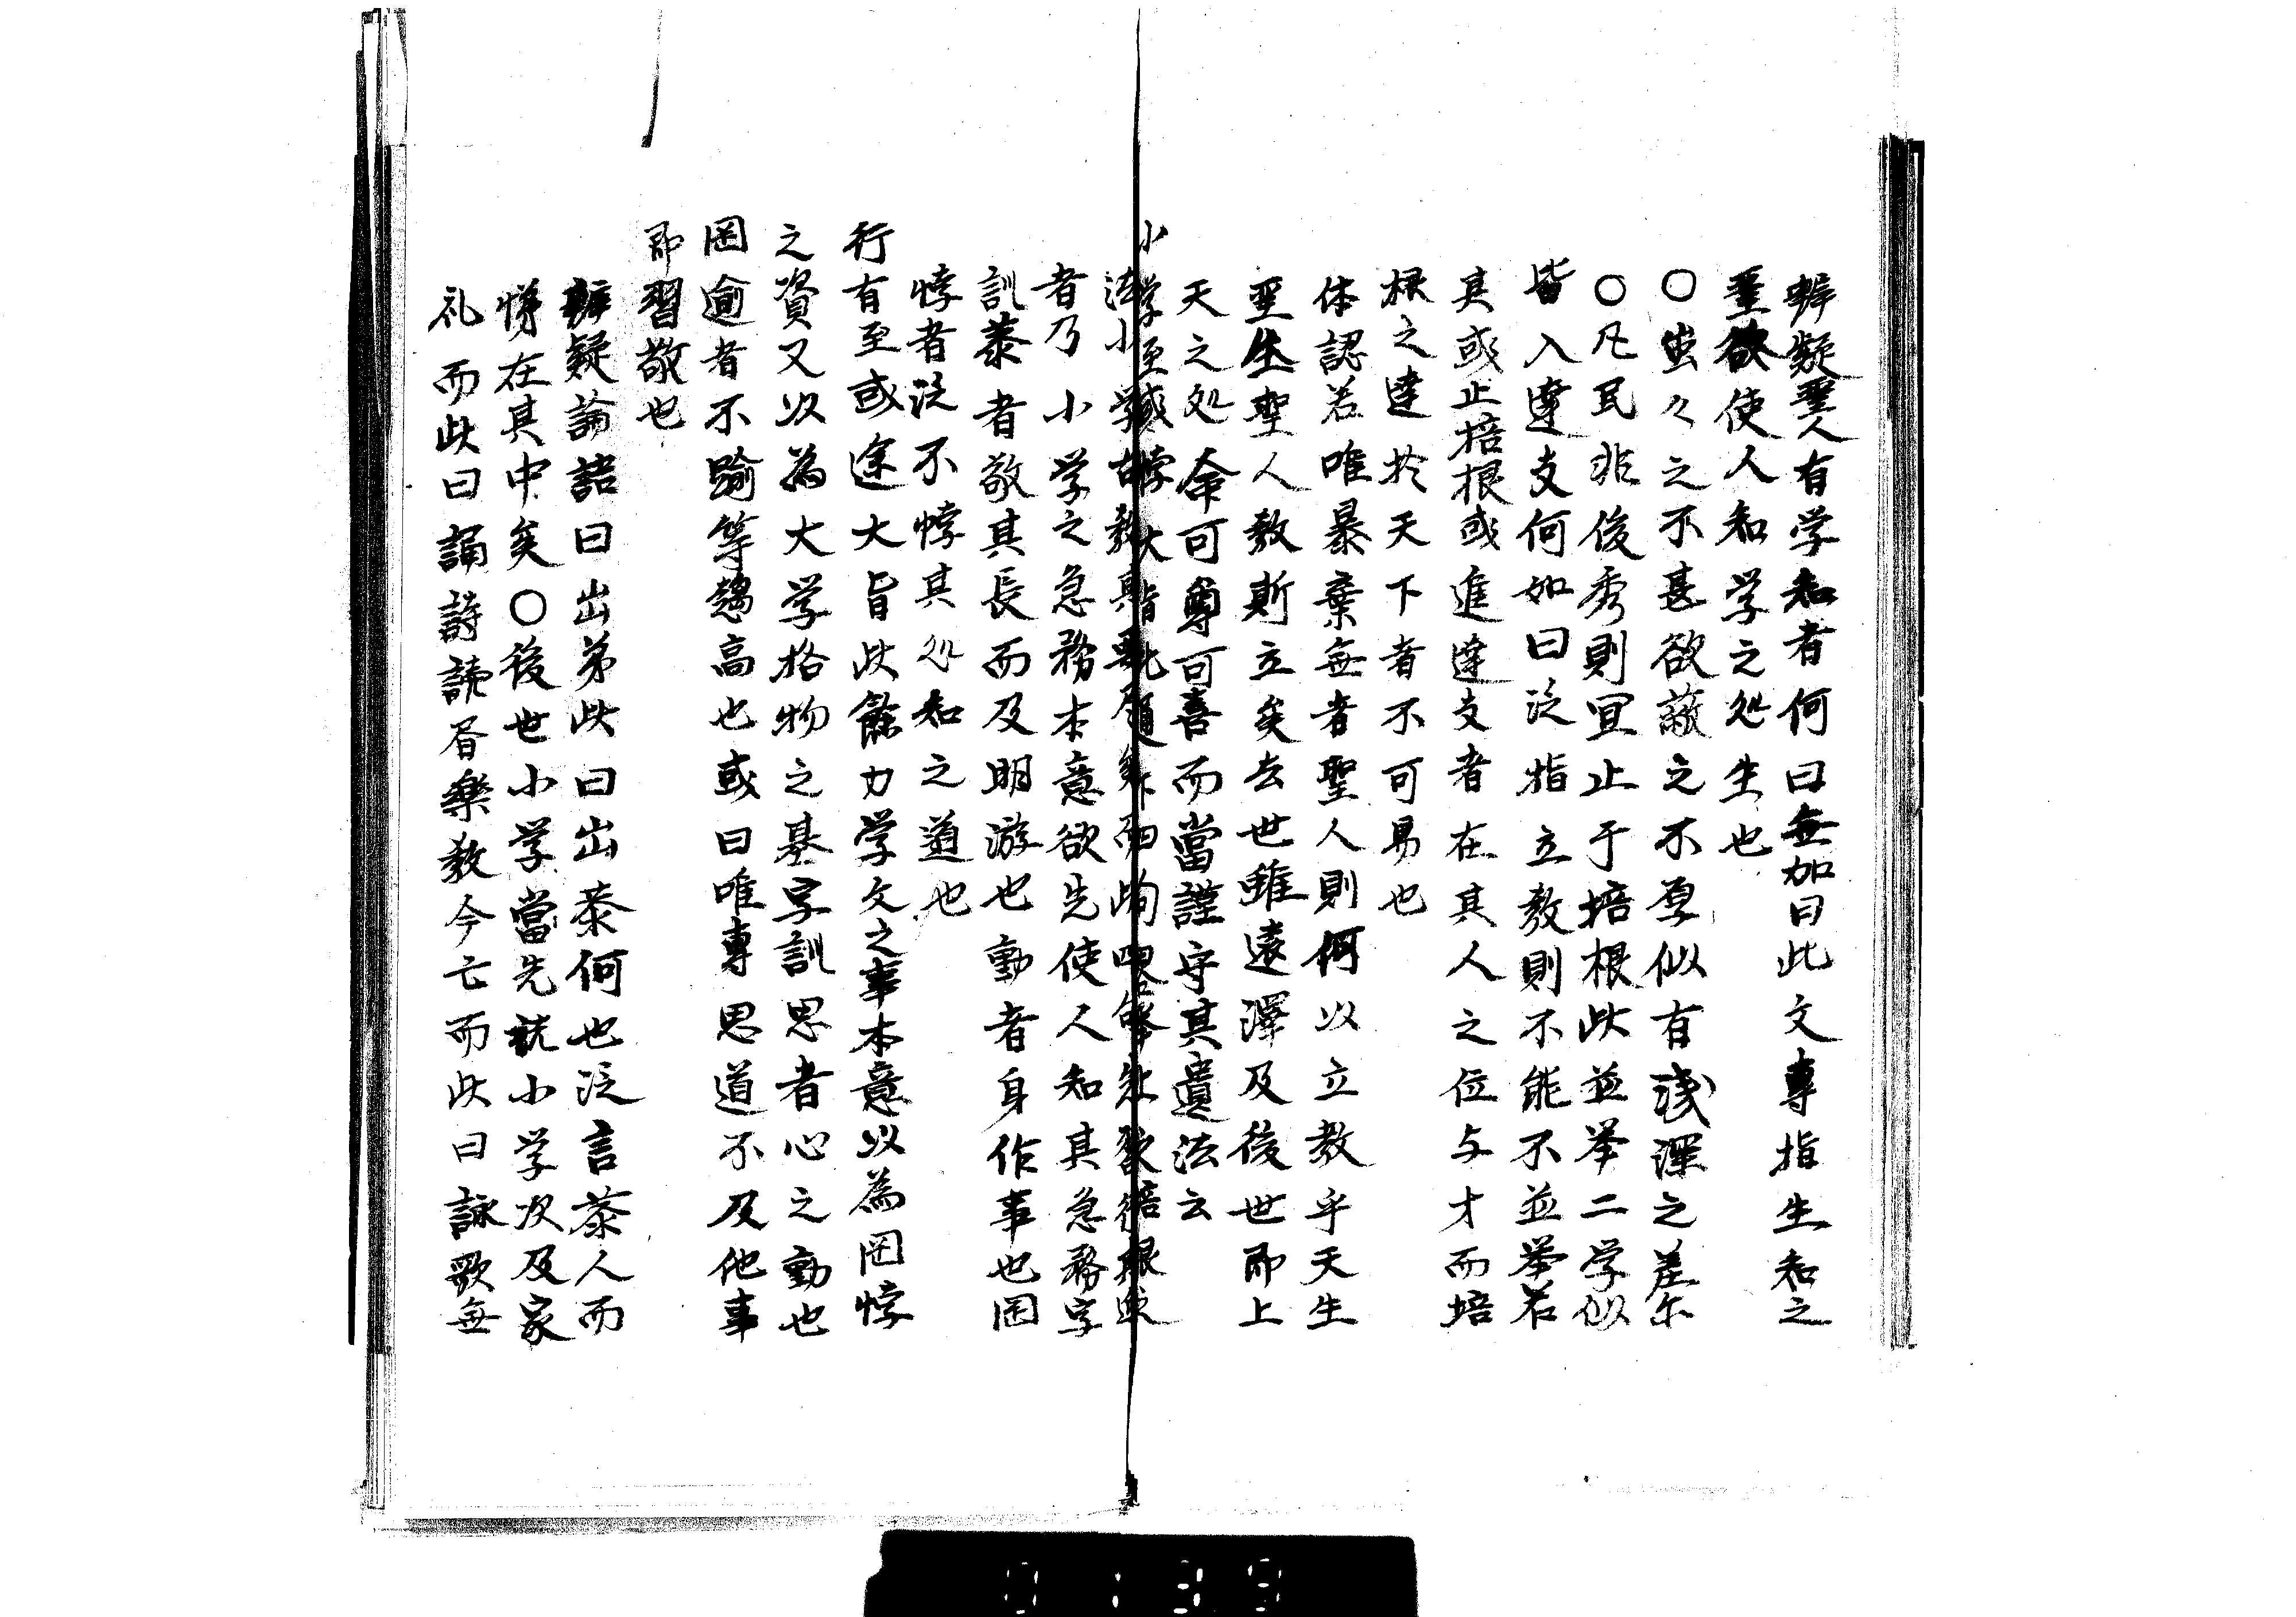 辨疑聖人有学知者何曰無加曰此文專指生知之
聖欲使人知学之処生也
〇蚩々之不甚欲蔽之不厚似有浅深之差尓
〇凡民非俊秀則宜止于培根此並举二学似
皆入達支何如曰泛指立教則不能不並举若
其或止培根或進達支者在其人之位与才而培
根之達於天下者不可易也
体認若唯暴棄無者聖人則何以立教乎天生
聖生聖人教斯立矣去世雖遠澤及後世即上
天之処命可尊可喜而當謹守其遺法云
小学至
者乃小学之急務本意欲先使人知其急務字
訓恭者敬其長而及明游也動者身作事也罔
悖者泛不悖其処知之道也
行有至或途大旨此餘力学文之事本意以為罔悖
之資又以為大学格物之基字訓思者心之動也
罔逾者不踰等趨高也或曰唯專思道不及他事
即習敬也
辨疑論語曰出弟此曰出恭何也泛言恭人而
悌在其中矣〇後世小学當先就小学次及家
礼而此曰誦詩読
楽教今亡而此曰詠歌無